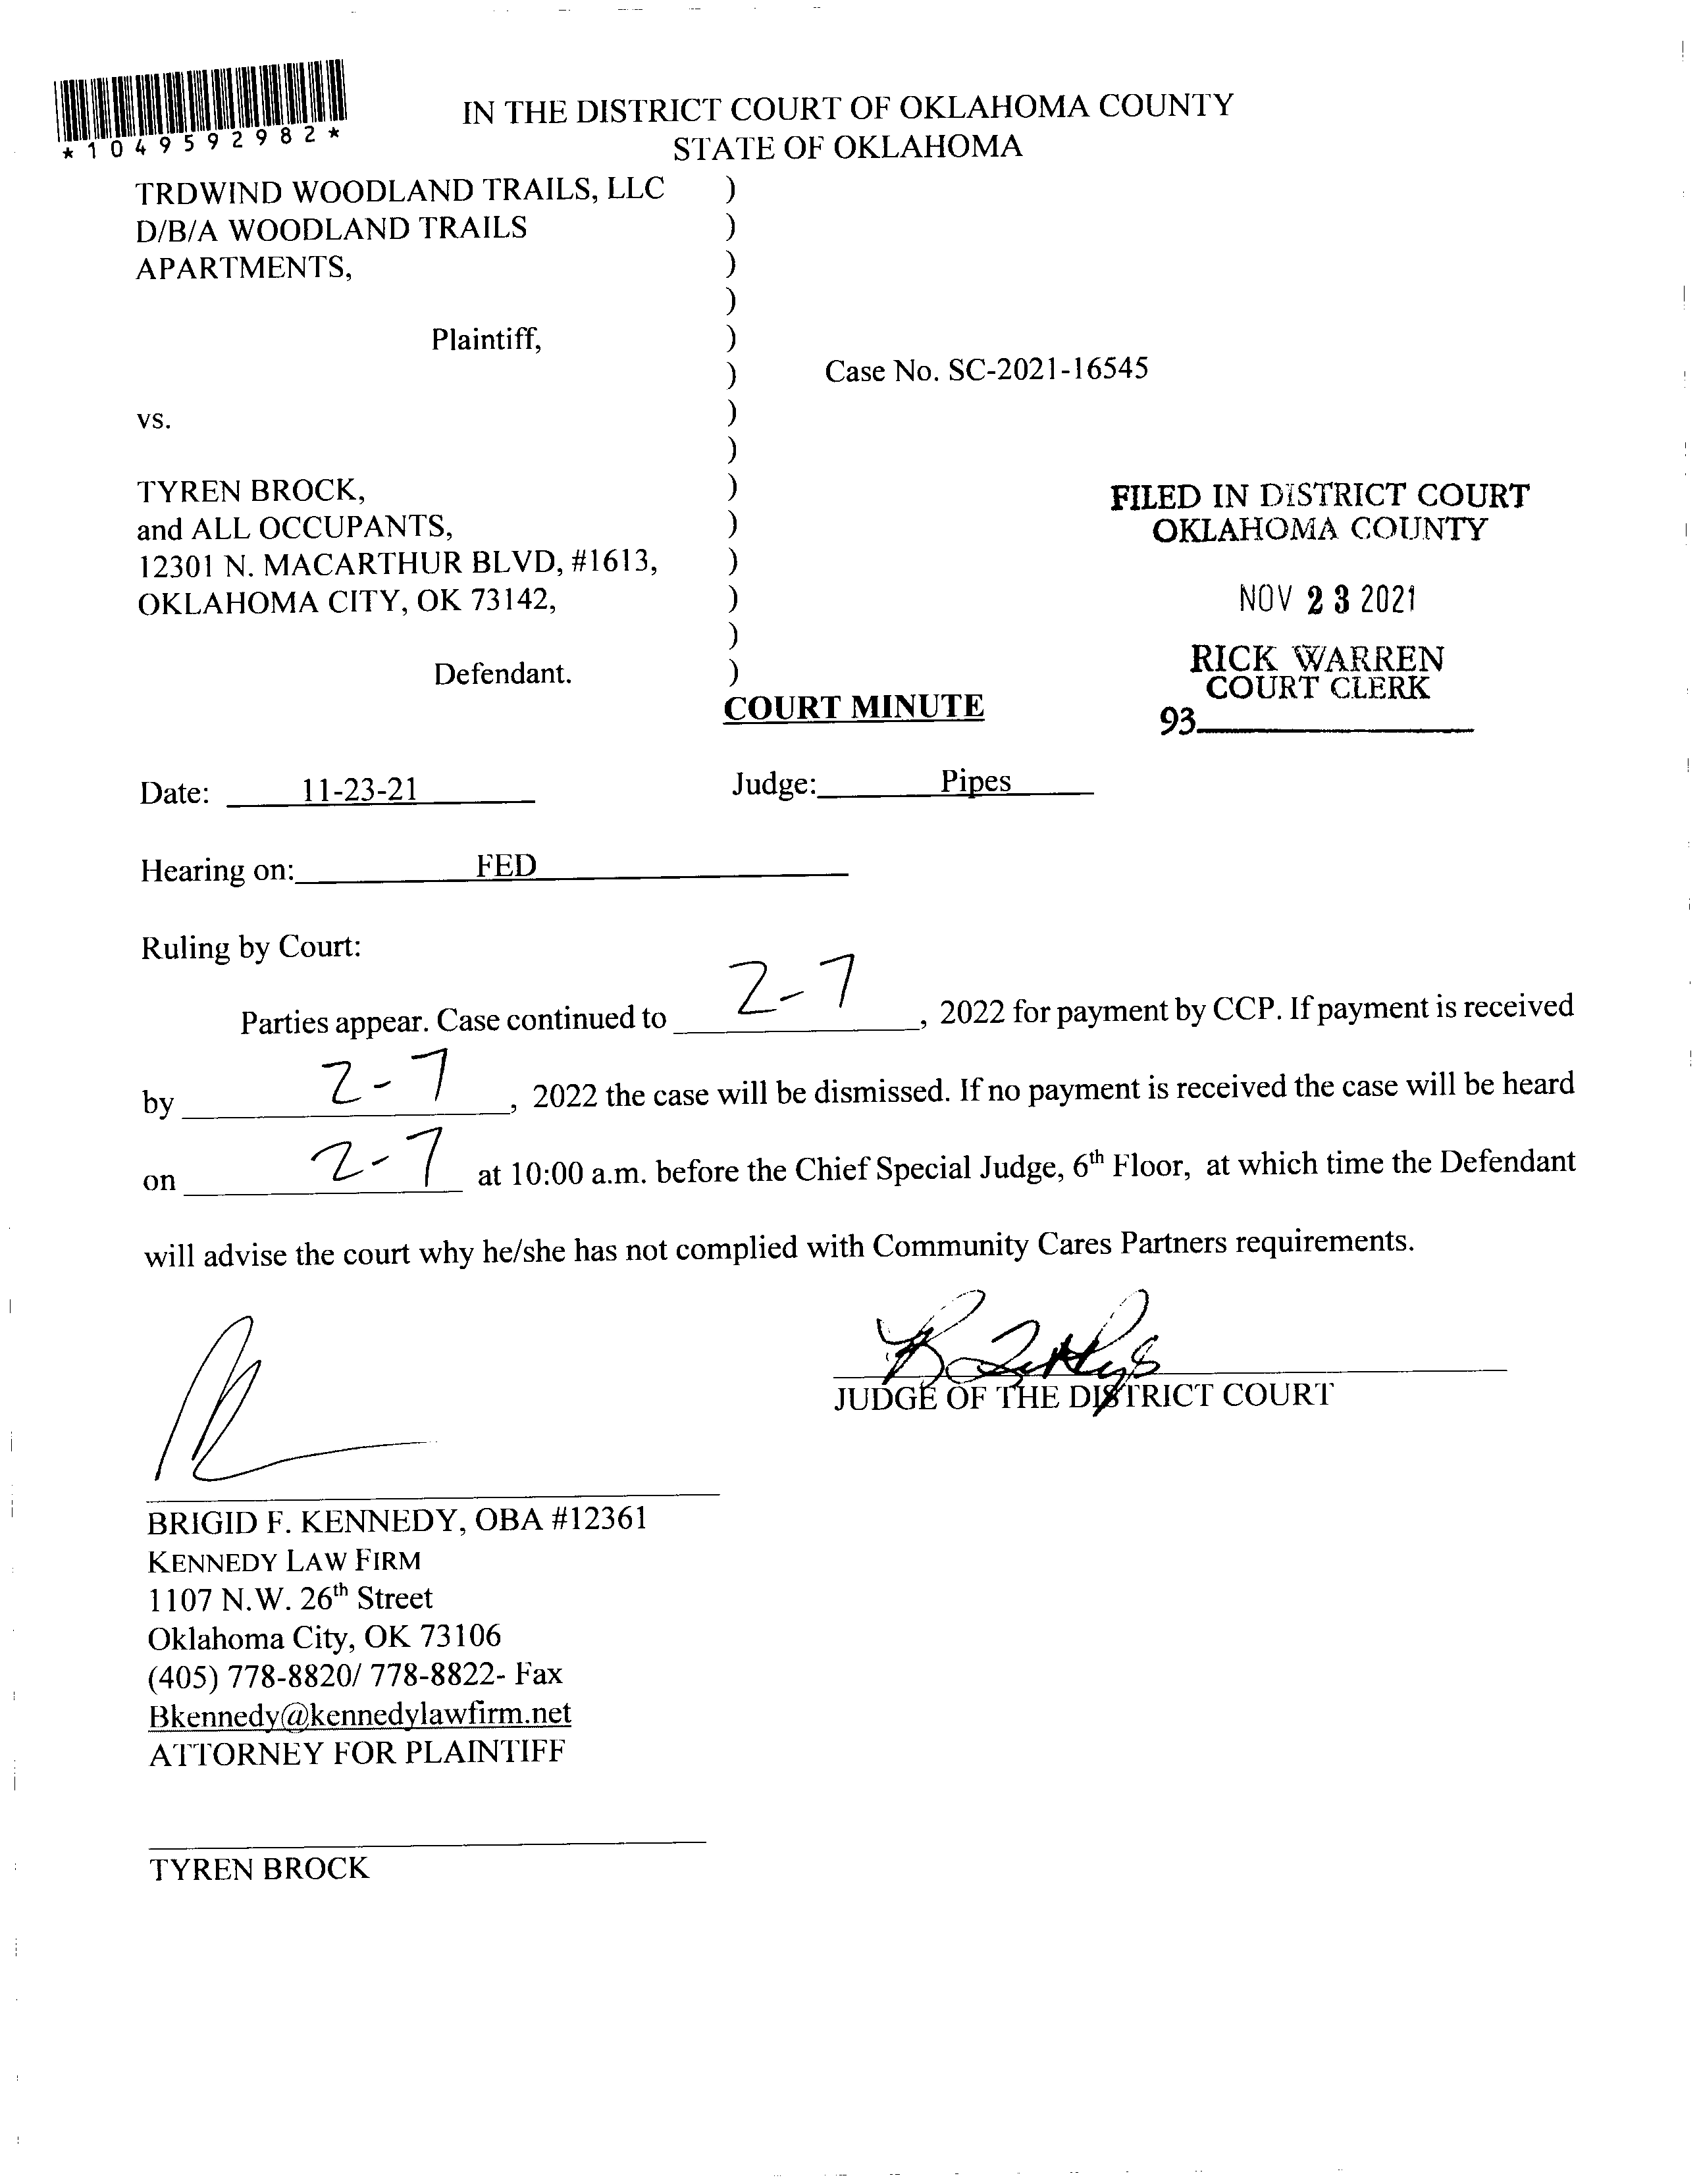 *1049592982*
IN THE DISTRICT COURT OF OKLAHOMA COUNTY
STATE OF OKLAHOMA
TRDWIND WOODLAND TRAILS, LLC )
D/B/A WOODLAND TRAILS )
APARTMENTS, )
)
Plaintiff, )
) Case No. SC-2021-16545
vs. )
)
TYREN BROCK, )
and ALL OCCUPANTS, )
12301 N. MACARTHUR BLVD, #1613, )
OKLAHOMA CITY, OK 73142, )
)
Defendant. )
FILED IN DISTRICT COURT
OKLAHOMA COUNTY
NOV 23 2021
RICK WARREN
COURT CLERK
93
COURT MINUTE
Date: 11-23-21 Judge: Pipes
Hearing on: FED
Ruling by Court:
Parties appear. Case continued to 2-7, 2022 for payment by CCP. If payment is received
by 2-7, 2022 the case will be dismissed. If no payment is received the case will be heard
on 2-7 at 10:00 a.m. before the Chief Special Judge, 6th Floor, at which time the Defendant
will advise the court why he/she has not complied with Community Cares Partners requirements.
JUDGE OF THE DISTRICT COURT
BRIGID F. KENNEDY, OBA #12361
KENNEDY LAW FIRM
1107 N.W. 26th Street
Oklahoma City, OK 73106
(405) 778-8820/ 778-8822- Fax
Bkennedy@kennedylawfirm.net
ATTORNEY FOR PLAINTIFF
TYREN BROCK